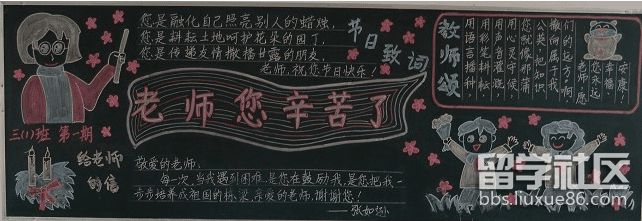 您是融化自己照亮别人的蜡烛,
您是耕耘土地呵护花朵的园丁,
您是传递友情撒播甘露的朋友,
老师,祝您节日快乐!
节日致词
教师颂
用语言播种
用彩笔耕耘
用声当灌溉
用心灵守候
您就像那蒲
公英,把知识
撒向属于我
们的远方,啊
老师,您
您永远
幸福
安康!
老师您辛苦了
三(1)班 第一期
给老师
的信
敬爱的老师:
每一次,当我遇到困难,是您在鼓励我,是您把我一
步步培养成祖国的栋梁,亲爱的老师,谢谢您!
——张如
留学社区
bbs.liuxue86.com